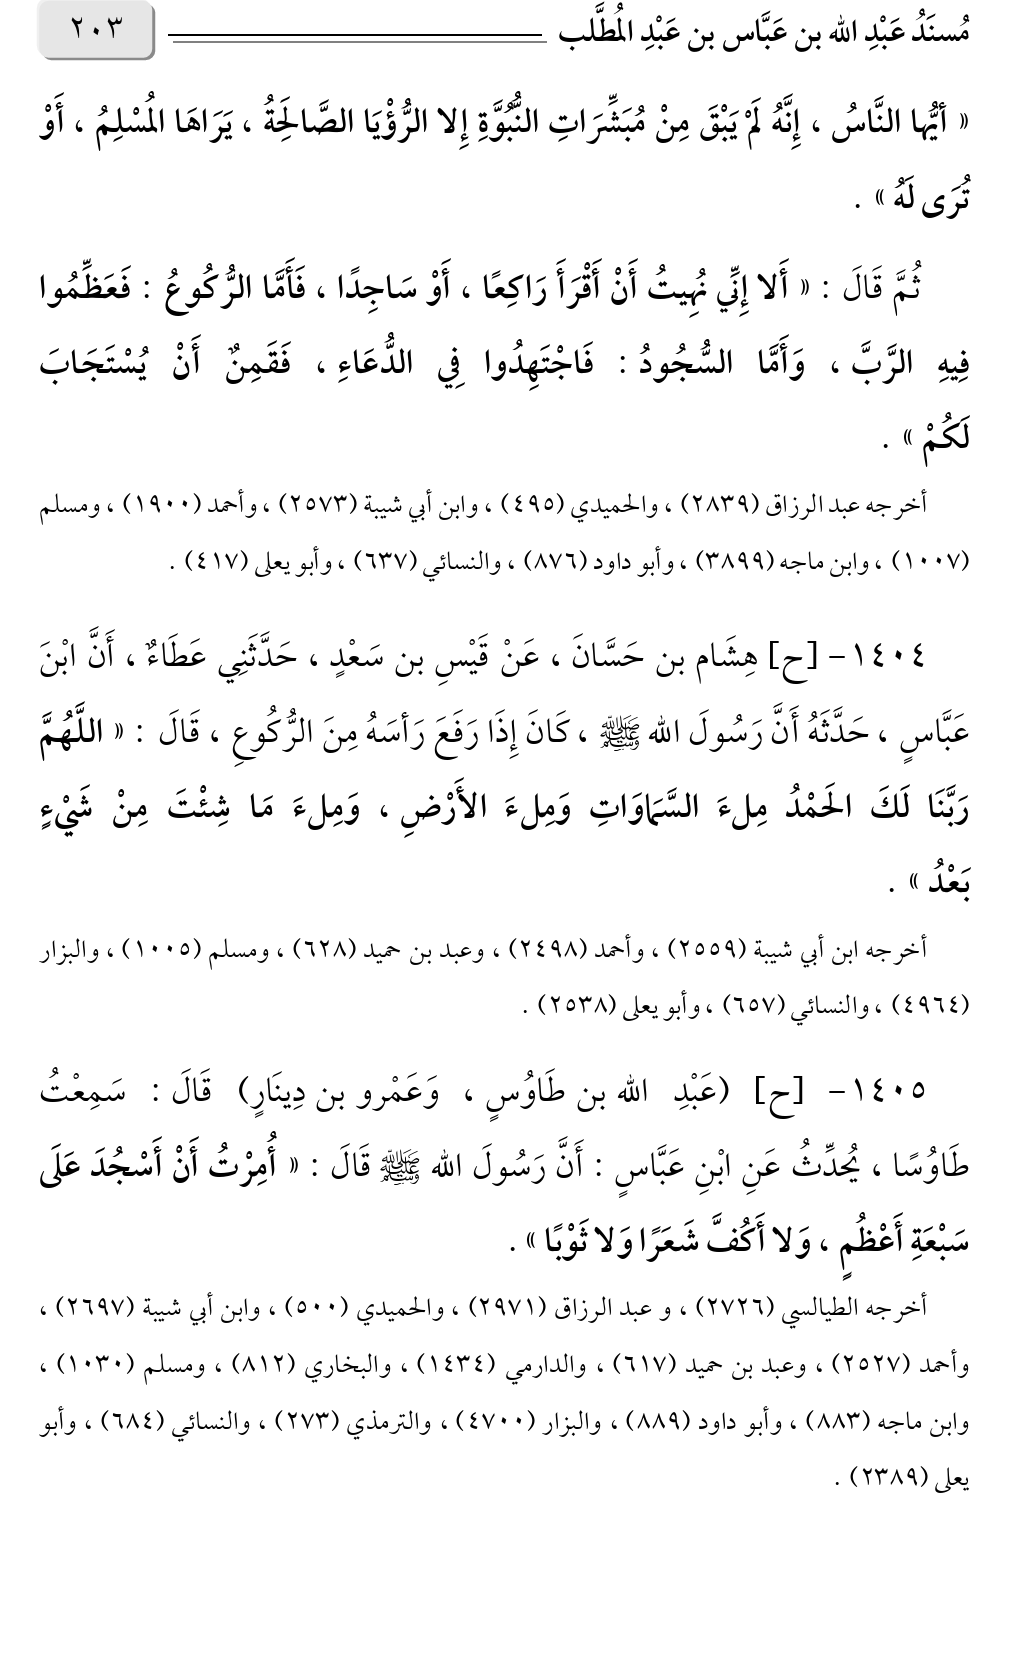 مُسنَدُ عَبْدِ الله بن عَبَّاس بن عَبْدِ المُطَّلب ٢٠٣
« أيُّها النَّاسُ ، إِنَّهُ لَمْ يَبْقَ مِنْ مُبَشِّرَاتِ النُّبُوَّةِ إِلا الرُّؤْيَا الصَّالَحِةُ ، يَرَاهَا المُسْلِمُ ، أَوْ
تُرَى لَهُ » .
ثُمَّ قَالَ : « أَلا إِنِّي نُهِيتُ أَنْ أَقْرَأَ رَاكِعًا ، أَوْ سَاجِدًا ، فَأَمَّا الرُّكُوعُ : فَعَظِّمُوا
فِيهِ الرَّبَّ ، وَأَمَّا السُّجُودُ : فَاجْتَهِدُوا فِي الدُّعَاءِ ، فَقَمِنٌ أَنْ يُسْتَجَابَ
لَكُمْ » .
أخرجه عبد الرزاق (٢٨٣٩) ، والحميدي (٤٩٥) ، وابن أبي شيبة (٢٥٧٣) ، وأحمد (١٩٠٠) ، ومسلم
(١٠٠٧) ، وابن ماجه (٣٨٩٩) ، وأبو داود (٨٧٦) ، والنسائي (٦٣٧) ، وأبو يعلى (٤١٧) .
١٤٠٤- [ح] هِشَام بن حَسَّانَ ، عَنْ قَيْسِ بن سَعْدٍ ، حَدَّثَنِي عَطَاءٌ ، أَنَّ ابْنَ
عَبَّاسٍ ، حَدَّثَهُ أَنَّ رَسُولَ الله ﷺ ، كَانَ إِذَا رَفَعَ رَأسَهُ مِنَ الرُّكُوعِ ، قَالَ : « اللَّهُمَّ
رَبَّنَا لَكَ الحَمْدُ مِلءَ السَّمَاوَاتِ وَمِلءَ الأَرْضِ ، وَمِلءَ مَا شِئْتَ مِنْ شَيْءٍ
بَعْدُ » .
أخرجه ابن أبي شيبة (٢٥٥٩) ، وأحمد (٢٤٩٨) ، وعبد بن حميد (٦٢٨) ، ومسلم (١٠٠٥) ، والبزار
(٤٩٦٤) ، والنسائي (٦٥٧) ، وأبو يعلى (٢٥٣٨) .
١٤٠٥- [ح] (عَبْدِ الله بن طَاوُسٍ ، وَعَمْرو بن دِينَارٍ) قَالَ : سَمِعْتُ
طَاوُسًا ، يُحدِّثُ عَنِ ابْنِ عَبَّاسٍ : أَنَّ رَسُولَ الله ﷺ قَالَ : « أُمِرْتُ أَنْ أَسْجُدَ عَلَى
سَبْعَةِ أَعْظُمٍ ، وَلا أَكُفَّ شَعَرًا وَلا ثَوْبًا » .
أخرجه الطيالسي (٢٧٢٦) ، و عبد الرزاق (٢٩٧١) ، والحميدي (٥٠٠) ، وابن أبي شيبة (٢٦٩٧) ،
وأحمد (٢٥٢٧) ، وعبد بن حميد (٦١٧) ، والدارمي (١٤٣٤) ، والبخاري (٨١٢) ، ومسلم (١٠٣٠) ،
وابن ماجه (٨٨٣) ، وأبو داود (٨٨٩) ، والبزار (٤٧٠٠) ، والترمذي (٢٧٣) ، والنسائي (٦٨٤) ، وأبو
يعلى (٢٣٨٩) .